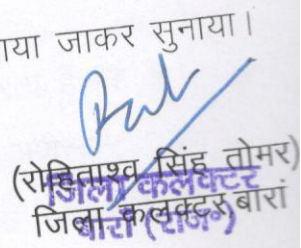 या जाकर सुनाया।
(रोहिताश्व सिंह तोमर)
जिला कलक्टर
जिला कलक्टर, बारां
बारां (राज०)